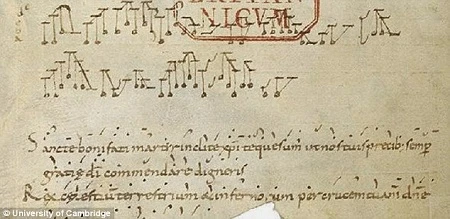 NICVM
Sancte bonifati martir inclite xpi te quesum ut nos tuis precib; semp
gratie di commendare digneris
terrestrium & infernorum per crucem tuam dne
© University of Cambridge